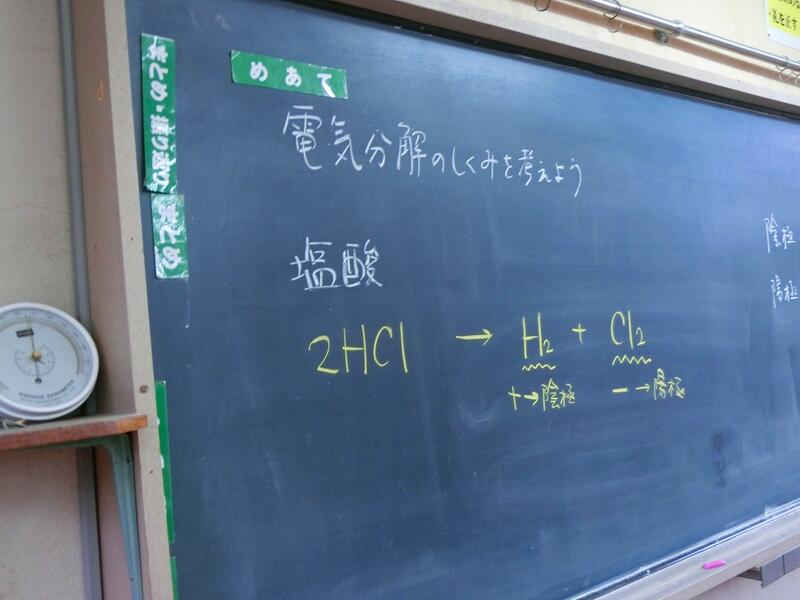 めあて
まとめ・振り返り
まとめ
電気分解のしくみを考えよう
塩酸
2HCl → H₂ + Cl₂
+→陰極 −→陽極
陰極
陽極
ANEROID BAROMETER